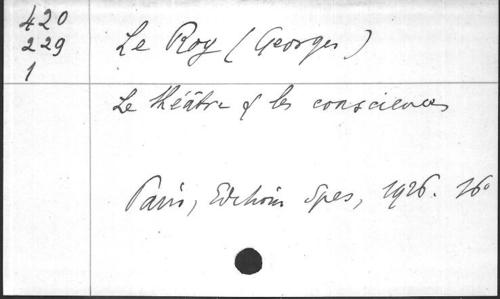 420
229
1
Le Roy (Georges)
Le théâtre & les consciences
Paris, Editions Spes, 1926. 16º